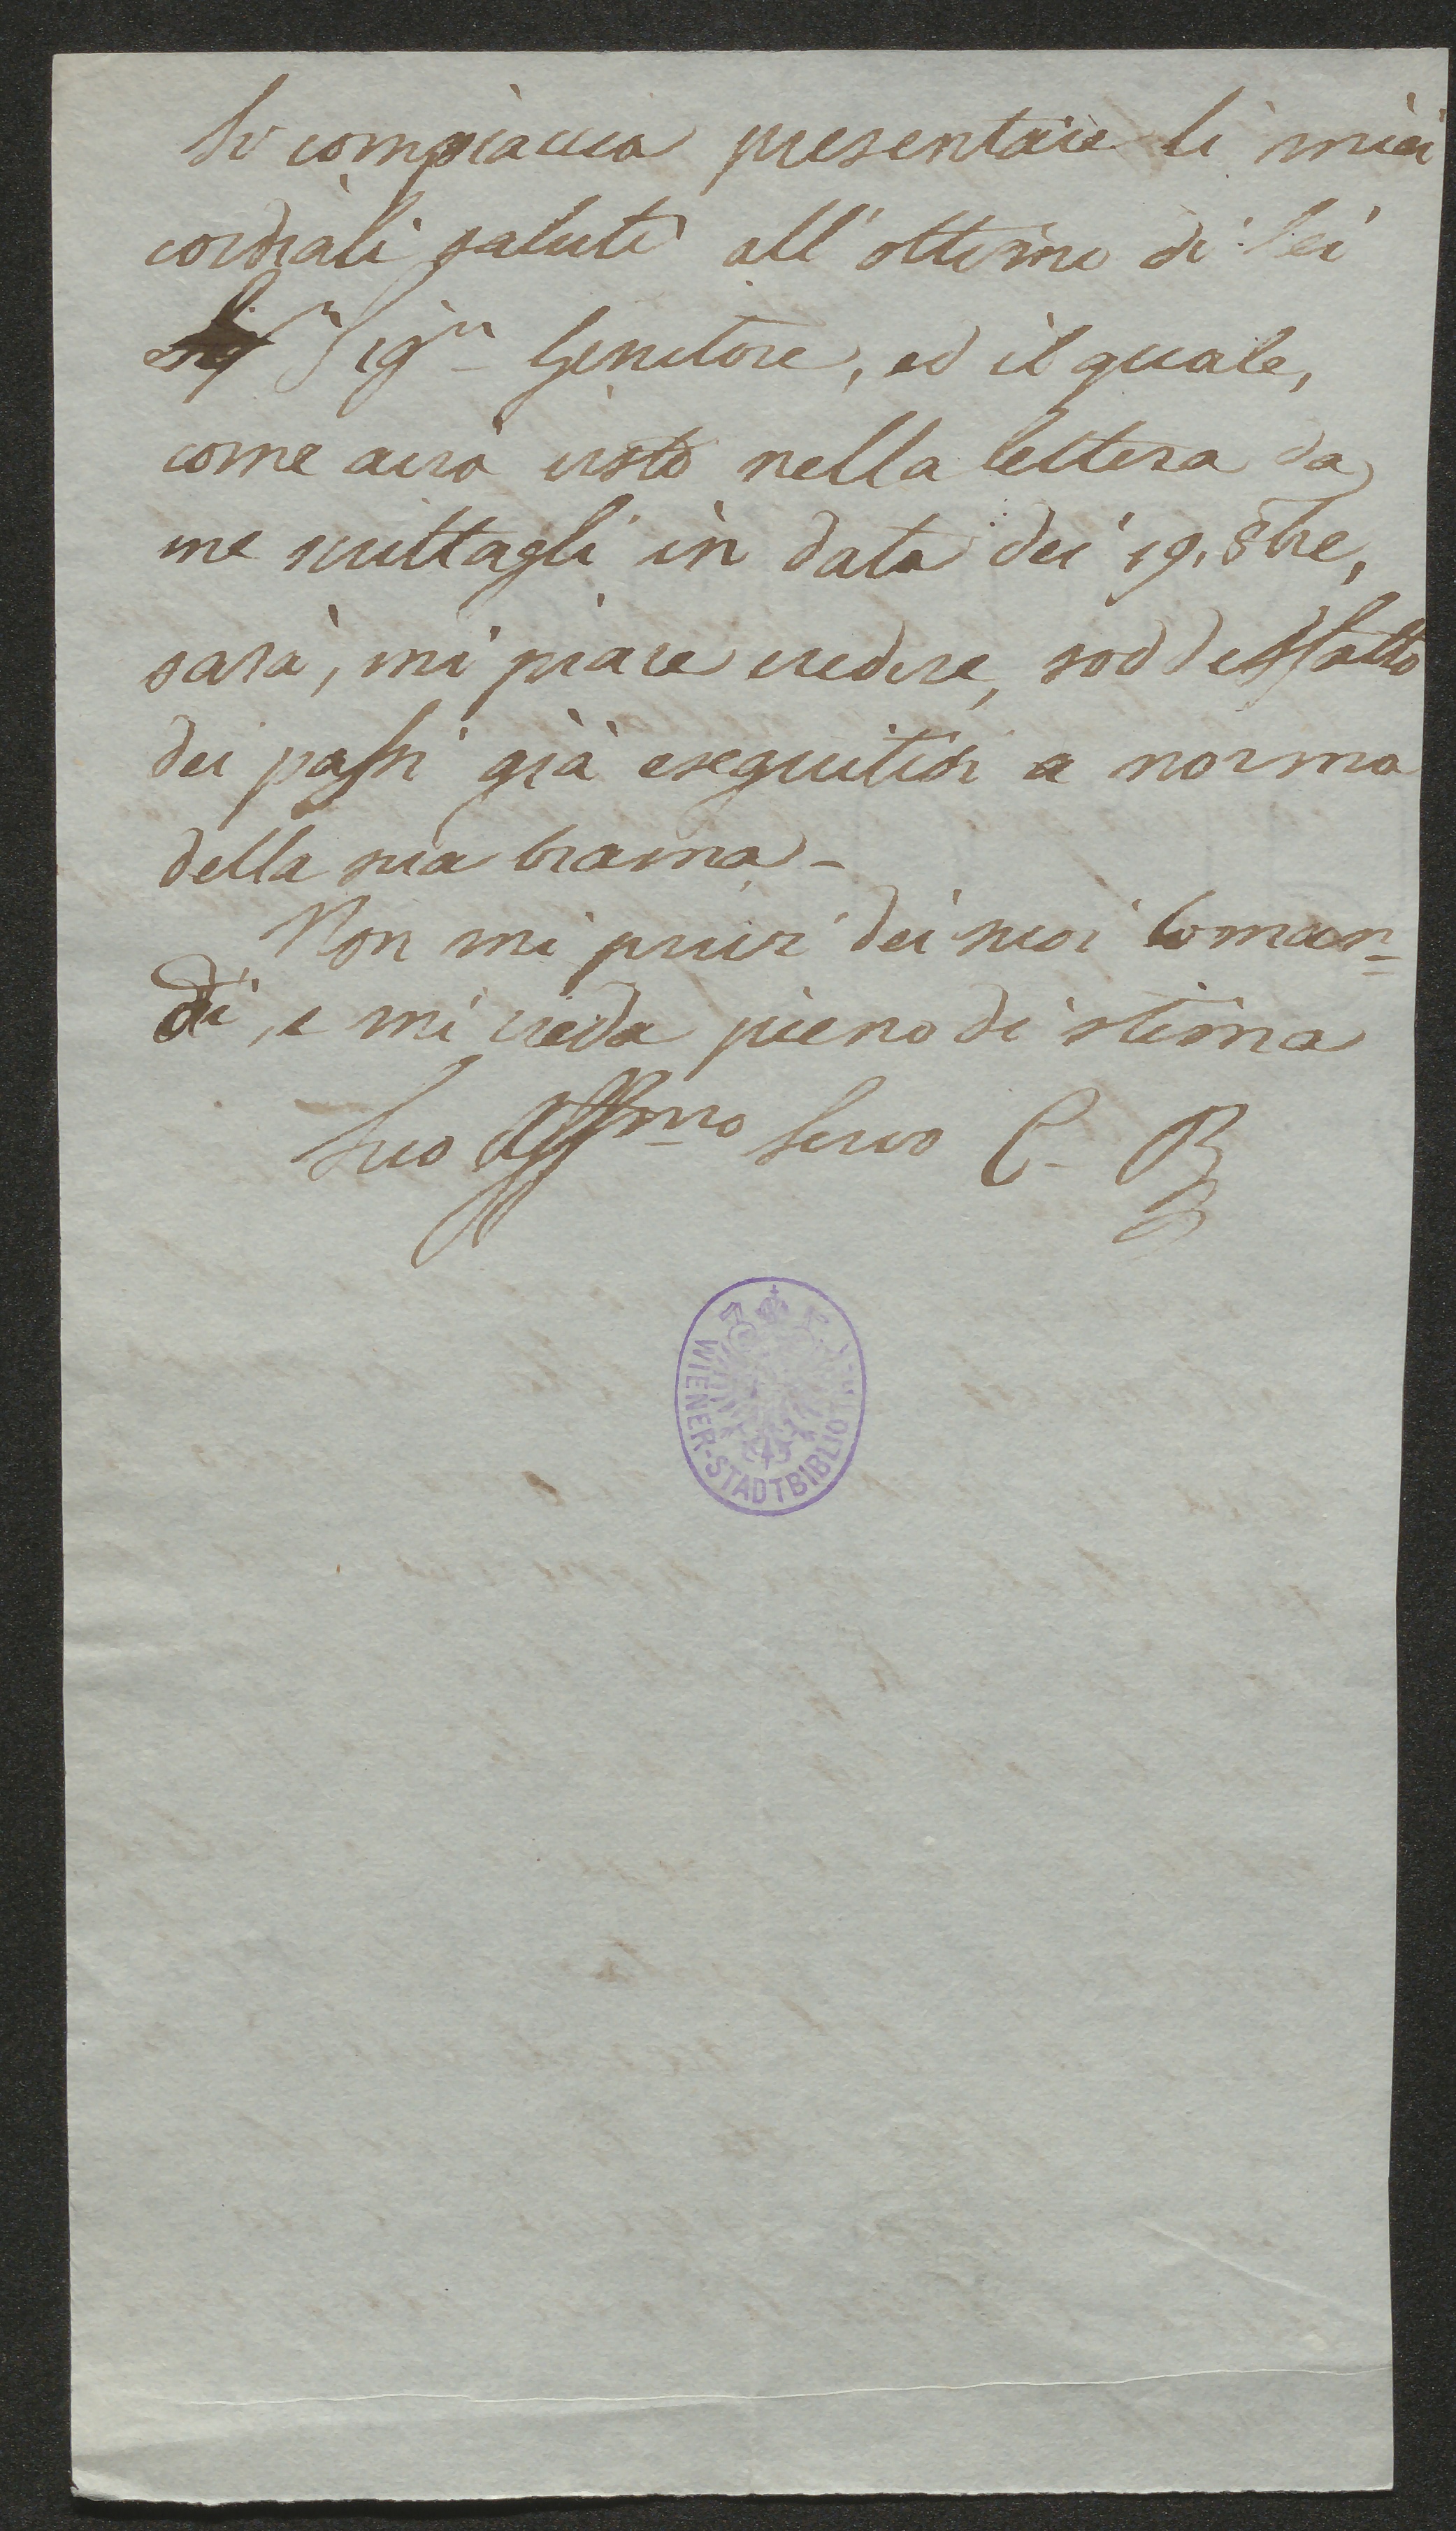 Si compiaccia presentare li miei
cordiali saluti all' ottimo di Lei
Sigr Genitore, ed il quale,
come avrà visto nella lettera da
me scrittagli in data dei 19. 8bre,
sarà, mi piace credere, soddisfatto
dei passi già eseguitisi a norma
della sua brama –
Non mi privi dei suoi coman=
di, e mi creda pieno di stima
Suo Affmo Servo C. B
WIENER-STADTBIBLIOT